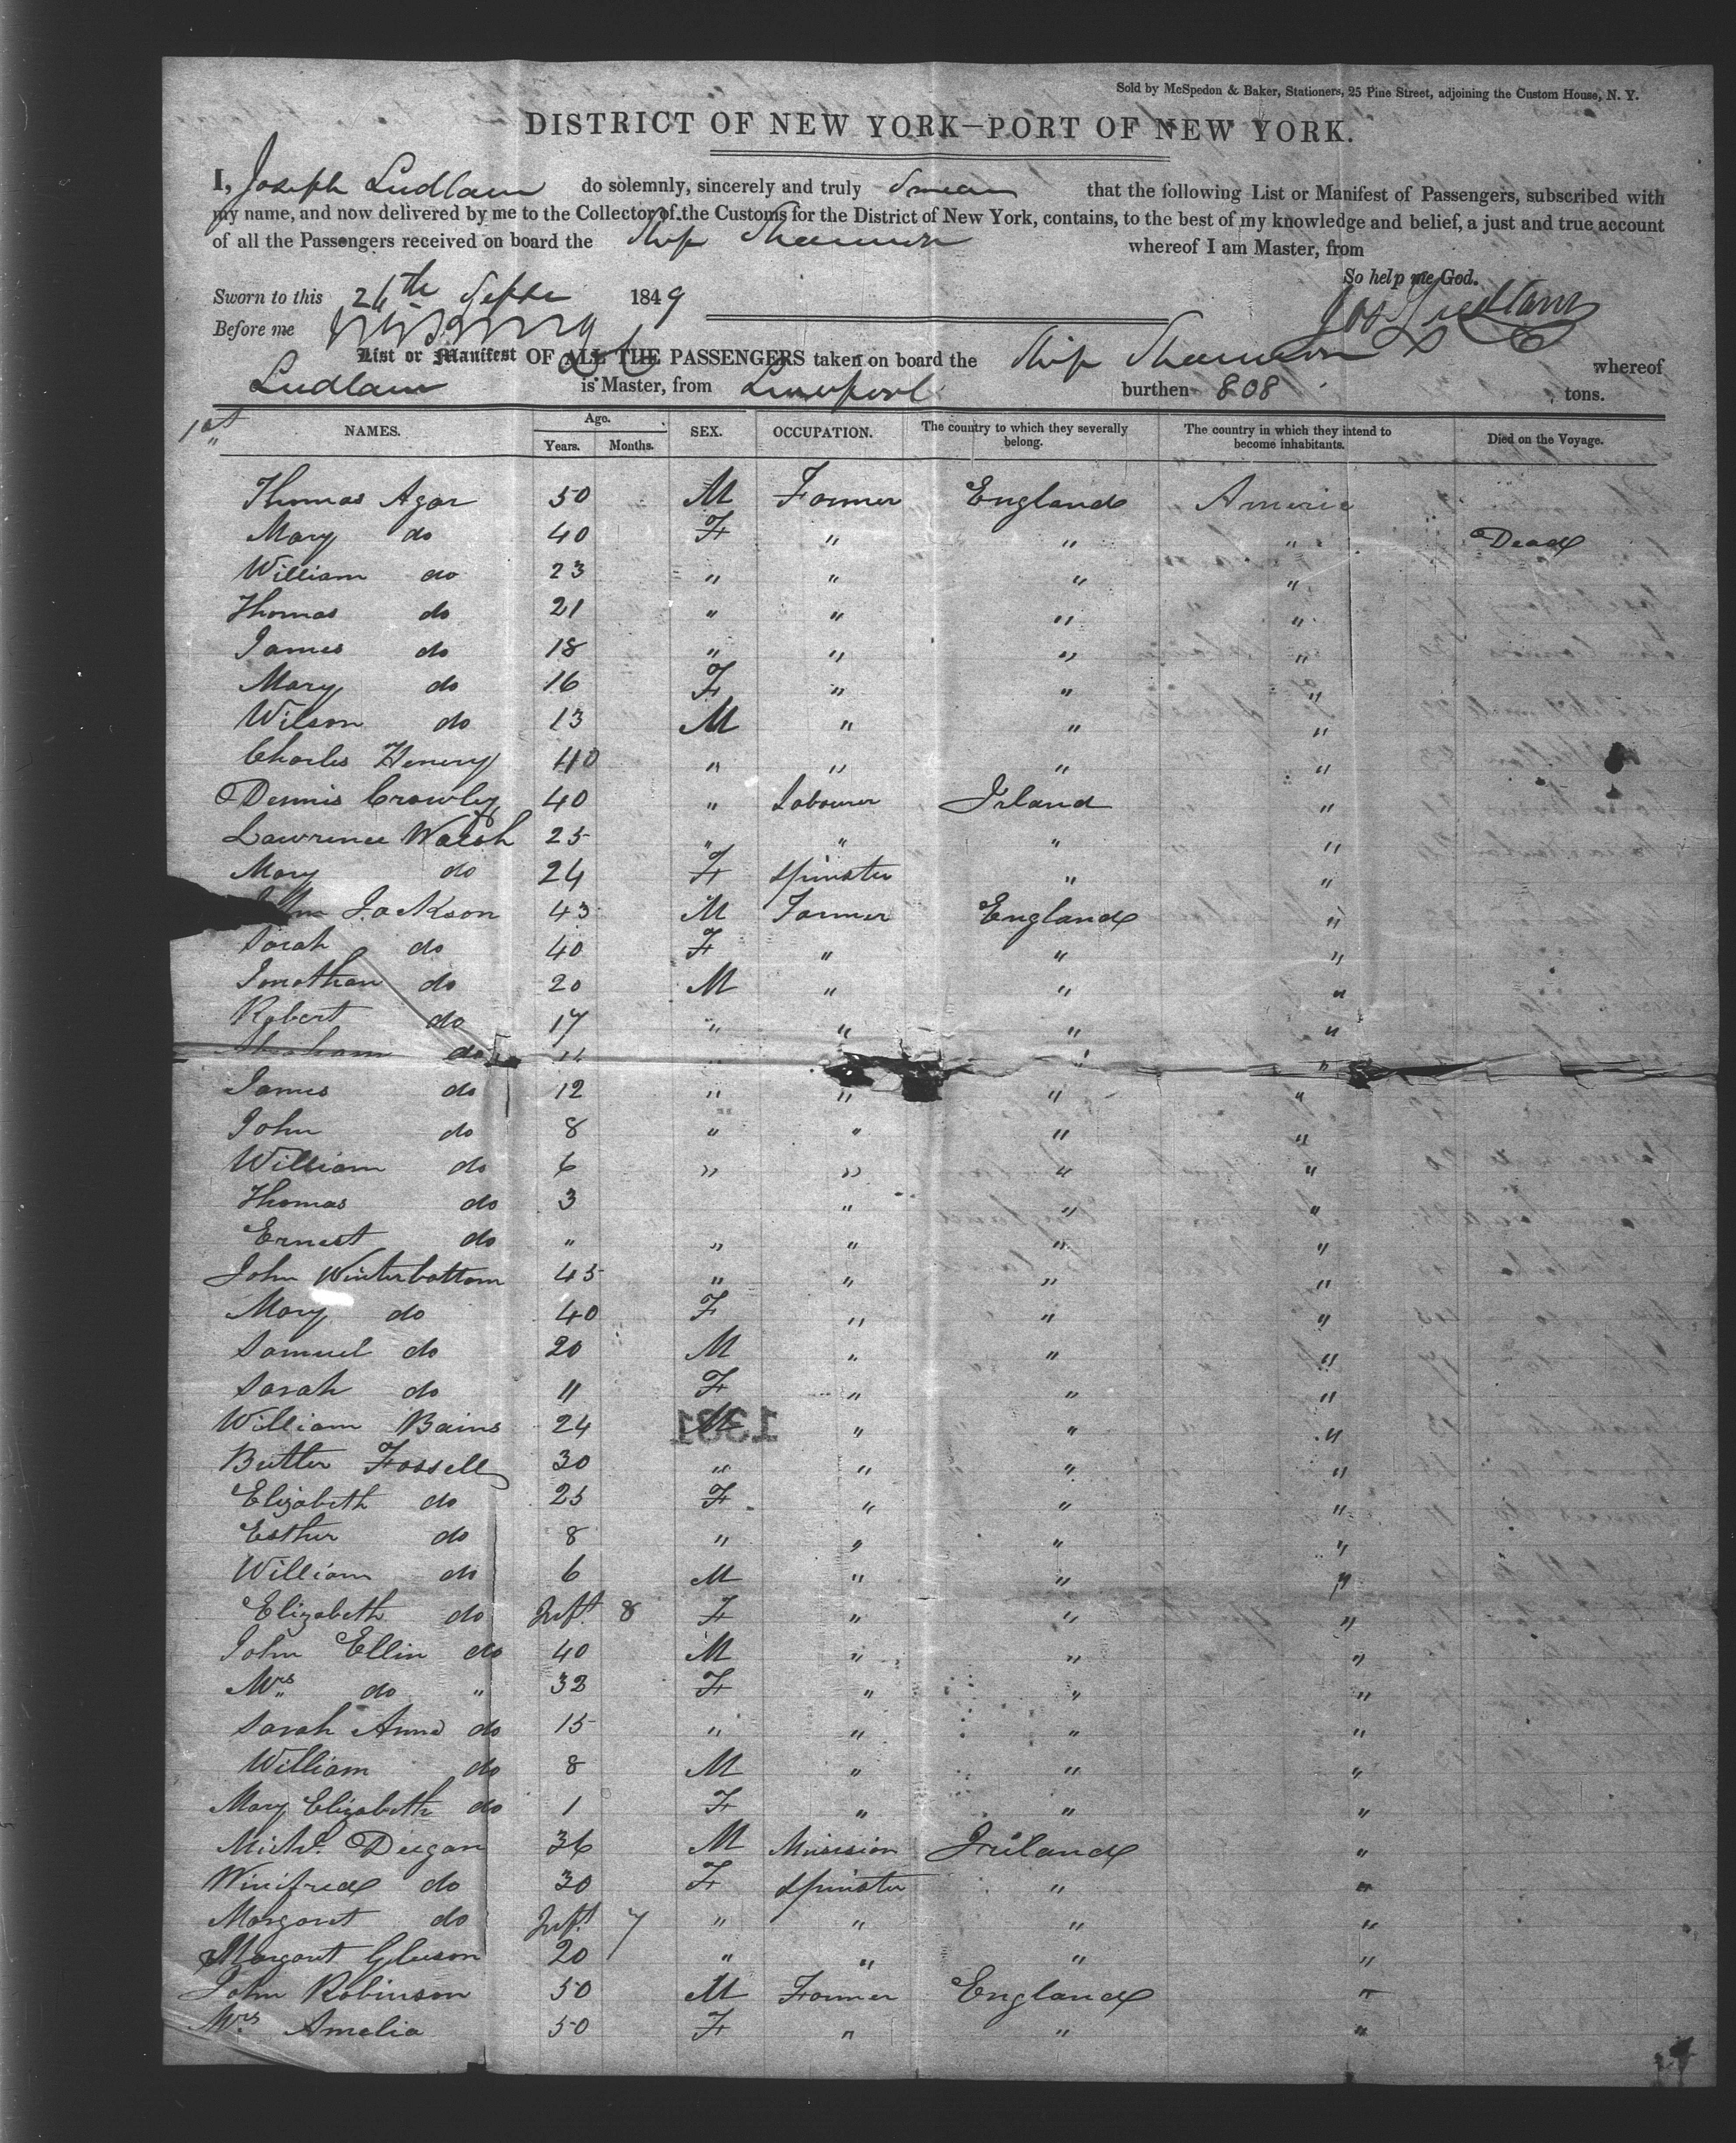 Sold by McSpedon & Baker, Stationers, 25 Pine Street, adjoining the Custom House, N. Y.
DISTRICT OF NEW YORK—PORT OF NEW YORK.
I, Joseph Ludlam do solemnly, sincerely and truly Swear that the following List or Manifest of Passengers, subscribed with
my name, and now delivered by me to the Collector of the Customs for the District of New York, contains, to the best of my knowledge and belief, a just and true account
of all the Passengers received on board the Ship Shannon whereof I am Master, from
So help me God.
Sworn to this 26th Septr 1849 Jos Ludlam
Before me
List or Manifest OF ALL THE PASSENGERS taken on board the Ship Shannon whereof
Ludlam is Master, from Liverpool burthen 808 tons.
1st
NAMES. Age. Years. Months. SEX. OCCUPATION. The country to which they severally belong. The country in which they intend to become inhabitants. Died on the Voyage.
Thomas Agar 50 M Farmer England Americ
Mary do 40 F " " " Dead
William do 23 " " " "
Thomas do 21 " " " "
James do 18 " " " "
Mary do 16 F " " "
Wilson do 13 M " " "
Charles Henery 40 " " " "
Dennis Crowley 40 " Labourer Irland "
Lawrence Walsh 25 " " " "
Mary do 24 F Spinster " "
Jackson 43 M Farmer England "
Sarah do 40 F " " "
Jonathan do 20 M " " "
Robert do 17 " " " "
Abraham do " "
James do 12 " " " "
John do 8 " " " "
William do 6 " " " "
Thomas do 3 " " "
Ernest do " " " " "
John Winterbottom 45 " " " "
Mary do 40 F " " "
Samuel do 20 M " " "
Sarah do 11 F " " "
William Bains 24 M " " "
1381
Butler Fossell 30 " " " "
Elizabeth do 25 F " " "
Esther do 8 " " " "
William do 6 M " " "
Elizabeth do Inft 8 F " " "
John Ellin do 40 M " " "
Mrs do " 32 F " " "
Sarah Anna do 15 " " " "
William do 8 M " " "
Mary Elizabeth do 1 F " " "
Michl. Deegan 36 M Musision Ireiland "
Winifred do 30 F Spinster " "
Margaret do Inft 7 " " " "
Margaret Gleeson 20 " " " "
John Robinson 50 M Farmer England "
Mrs Amelia 50 F " " "